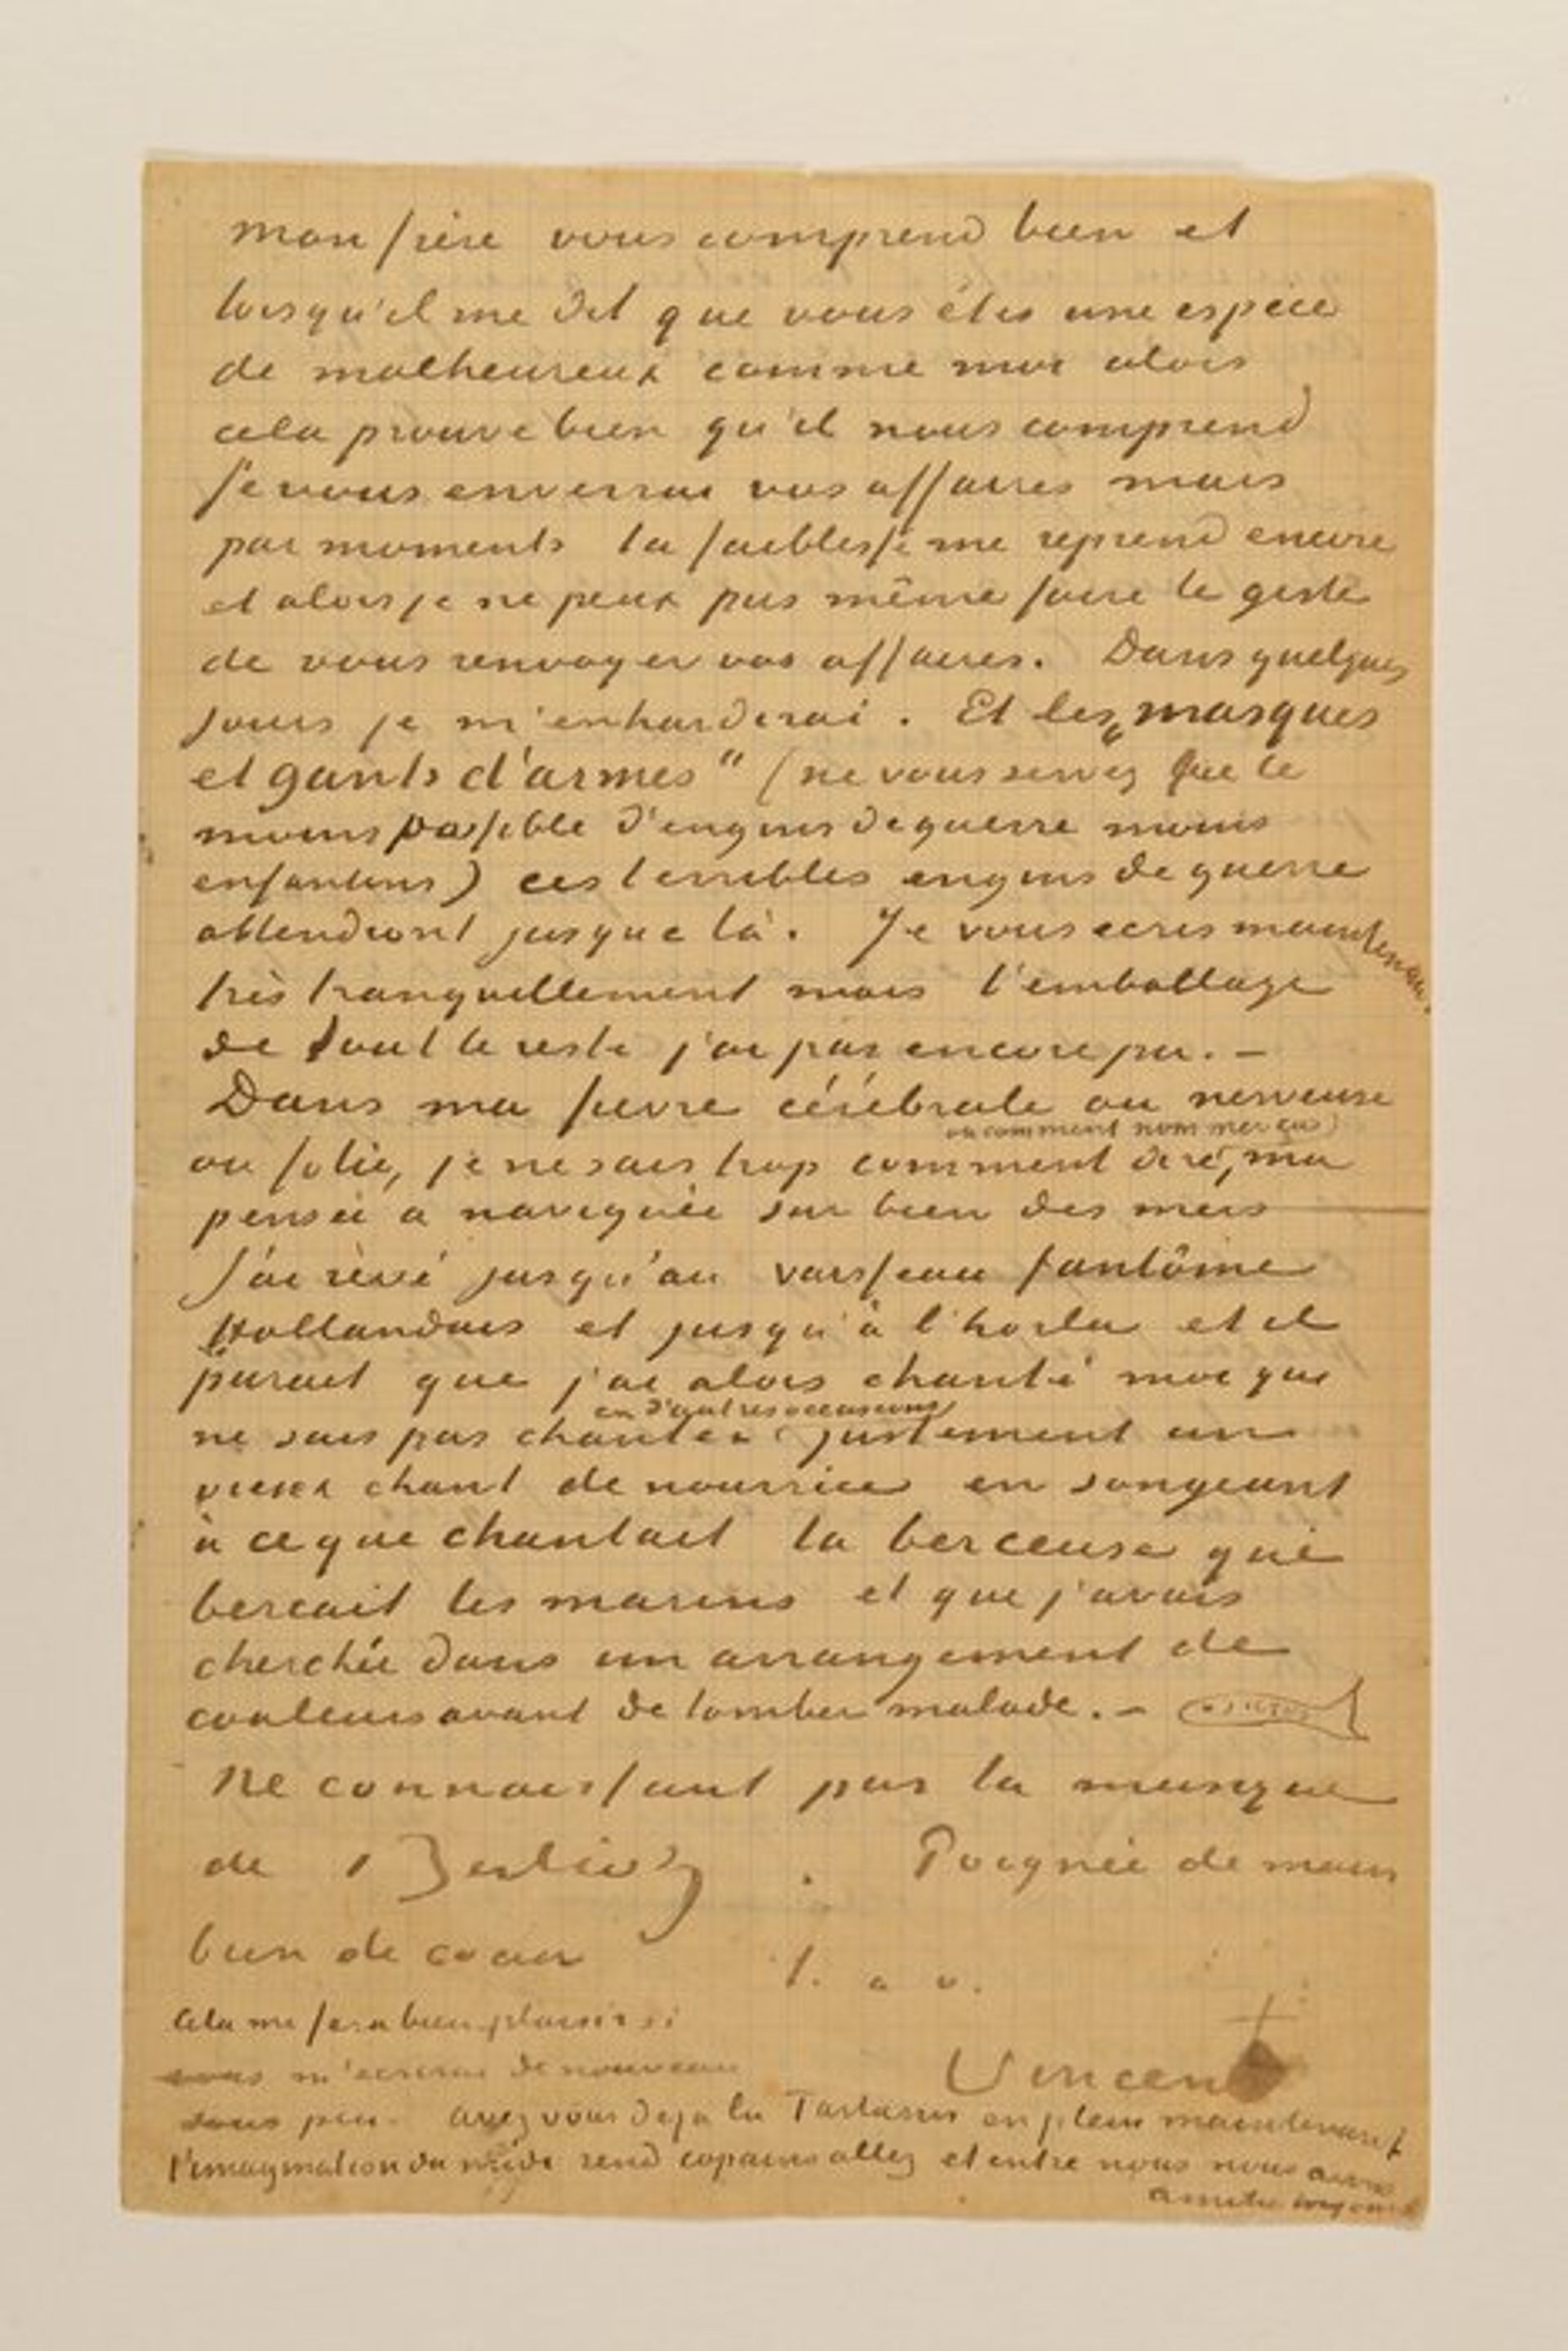 mon frère vous comprend bien et
lorsqu'il me dit que vous êtes une espèce
de malheureux comme moi alors
cela prouve bien qu'il nous comprend
Je vous enverrai vos affaires mais
par moments la faiblesse me reprend encore
et alors je ne peux pas même faire le geste
de vous renvoyer vos affaires. Dans quelques
jours je m'enhardirai. Et les „masques
et gants d'armes" (ne vous servez que le
moins possible d'engins de guerre moins
enfantins) ces terribles engins de guerre
attendront jusque là. Je vous ecris maintenant
très tranquillement mais l'emballage
de tout le reste j'ai pas encore pu. –
Dans ma fievre cérébrale ou nerveuse
ou comment nommer ça)
ou folie, je ne sais trop comment dire, ma
pensée a naviguée sur bien des mers
J'ai rêvé jusqu'au vaisseau fantôme
Hollandais et jusqu'à l'horla et il
parait que j'ai alors chanté moi qui
en d'autres occasions
ne sais pas chanter justement un
vieux chant de nourrice en songeant
à ce que chantait la berceuse qui
bercait les marins et que j'avais
cherchée dans un arrangement de
couleurs avant de tomber malade. –
Ne connaissant pas la musique
de Berlioz. Poignée de main
bien de coeur
t. a v.
Cela me fera bien plaisir si
vous m'ecrirai de nouveau
sous peu. Avez vous deja lu Tartarin en plein maintenant
l'imagination du midi rend copains allez et entre nous nous avons
amitié toujours
Vincent